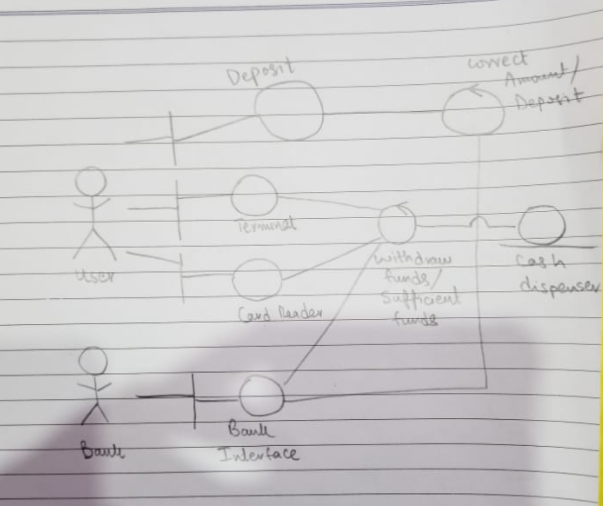 Deposit
correct
Amount/
Deposit
Terminal
User
withdraw
funds/
Sufficient
funds
Cash
dispenser
Card Reader
Bank
Bank
Interface